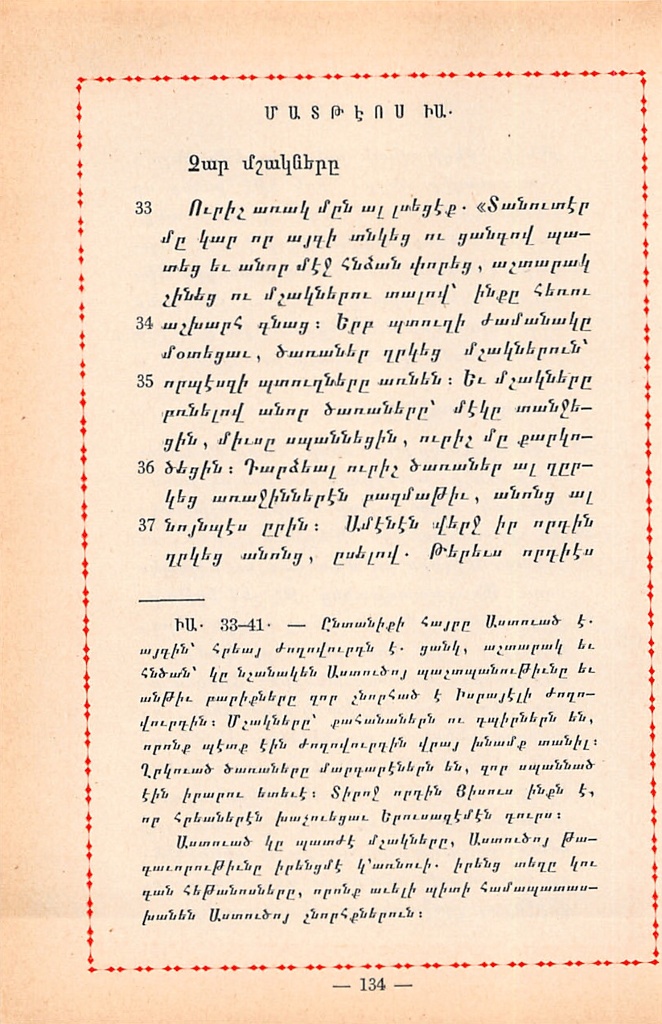 ՄԱՏԹԷՈՍ ԻԱ.
Չար մշակները
33 Ուրիշ առակ մըն ալ լսեցէք. «Տանուտէր
մը կար որ այգի տնկեց ու ցանգով պա-
տեց եւ անոր մէջ հնձան փորեց, աշտարակ
շինեց ու մշակներու տալով՝ ինքը հեռու
34 աշխարհ գնաց։ Երբ պտուղի ժամանակը
մօտեցաւ, ծառաներ ղրկեց մշակներուն՝
35 որպէսզի պտուղները առնեն։ Եւ մշակները
բռնելով անոր ծառաները՝ մէկը տանջե-
ցին, միւսը սպաննեցին, ուրիշ մը քարկո-
36 ծեցին։ Դարձեալ ուրիշ ծառաներ ալ ղըր-
կեց առաջիններէն բազմաթիւ, անոնց ալ
37 նոյնպէս ըրին։ Ամէնէն վերջ իր որդին
ղրկեց անոնց, ըսելով. Թերեւս որդիէս
ԻԱ. 33-41. — Ընտանիքի հայրը Աստուած է.
այգին՝ հրեայ ժողովուրդն է. ցանկ, աշտարակ եւ
հնձան՝ կը նշանակեն Աստուծոյ պաշտպանութիւնը եւ
անթիւ բարիքները զոր շնորհած է Իսրայէլի ժողո-
վուրդին։ Մշակները՝ քահանաներն ու դպիրներն են,
որոնք պէտք էին ժողովուրդին վրայ խնամք տանիլ։
Ղրկուած ծառաները մարգարէներն են, զոր սպաննած
էին իրարու ետեւէ։ Տիրոջ որդին Յիսուս ինքն է,
որ Հրեաներէն խաչուեցաւ Երուսաղէմէն դուրս։
Աստուած կը պատժէ մշակները, Աստուծոյ թա-
գաւորութիւնը իրենցմէ կ՚առնուի. իրենց տեղը կու
գան հեթանոսները, որոնք աւելի պիտի համապատաս-
խանեն Աստուծոյ շնորհքներուն։
— 134 —